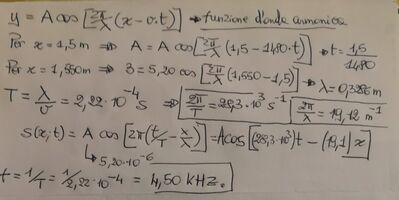 y = A cos [2π/λ (x - v·t)] → funzione d'onda armonica
Per x = 1,5 m ⇒ A = A cos [2π/λ (1,5 - 1480·t)] → t = 1,5/1480
Per x = 1,550 m ⇒ 3 = 5,20 cos [2π/λ (1,550 - 1,5)] → λ = 0,3286 m
T = λ/v = 2,22·10⁻⁴ s ⇒ 2π/T = 28,3·10³ s⁻¹ 2π/λ = 19,12 m⁻¹
s(x;t) = A cos [2π(t/T - x/λ)] = A cos [(28,3·10³)t - (19,1)x]
↳ 5,20·10⁻⁶
f = 1/T = 1/2,22·10⁻⁴ = 4,50 KHz.